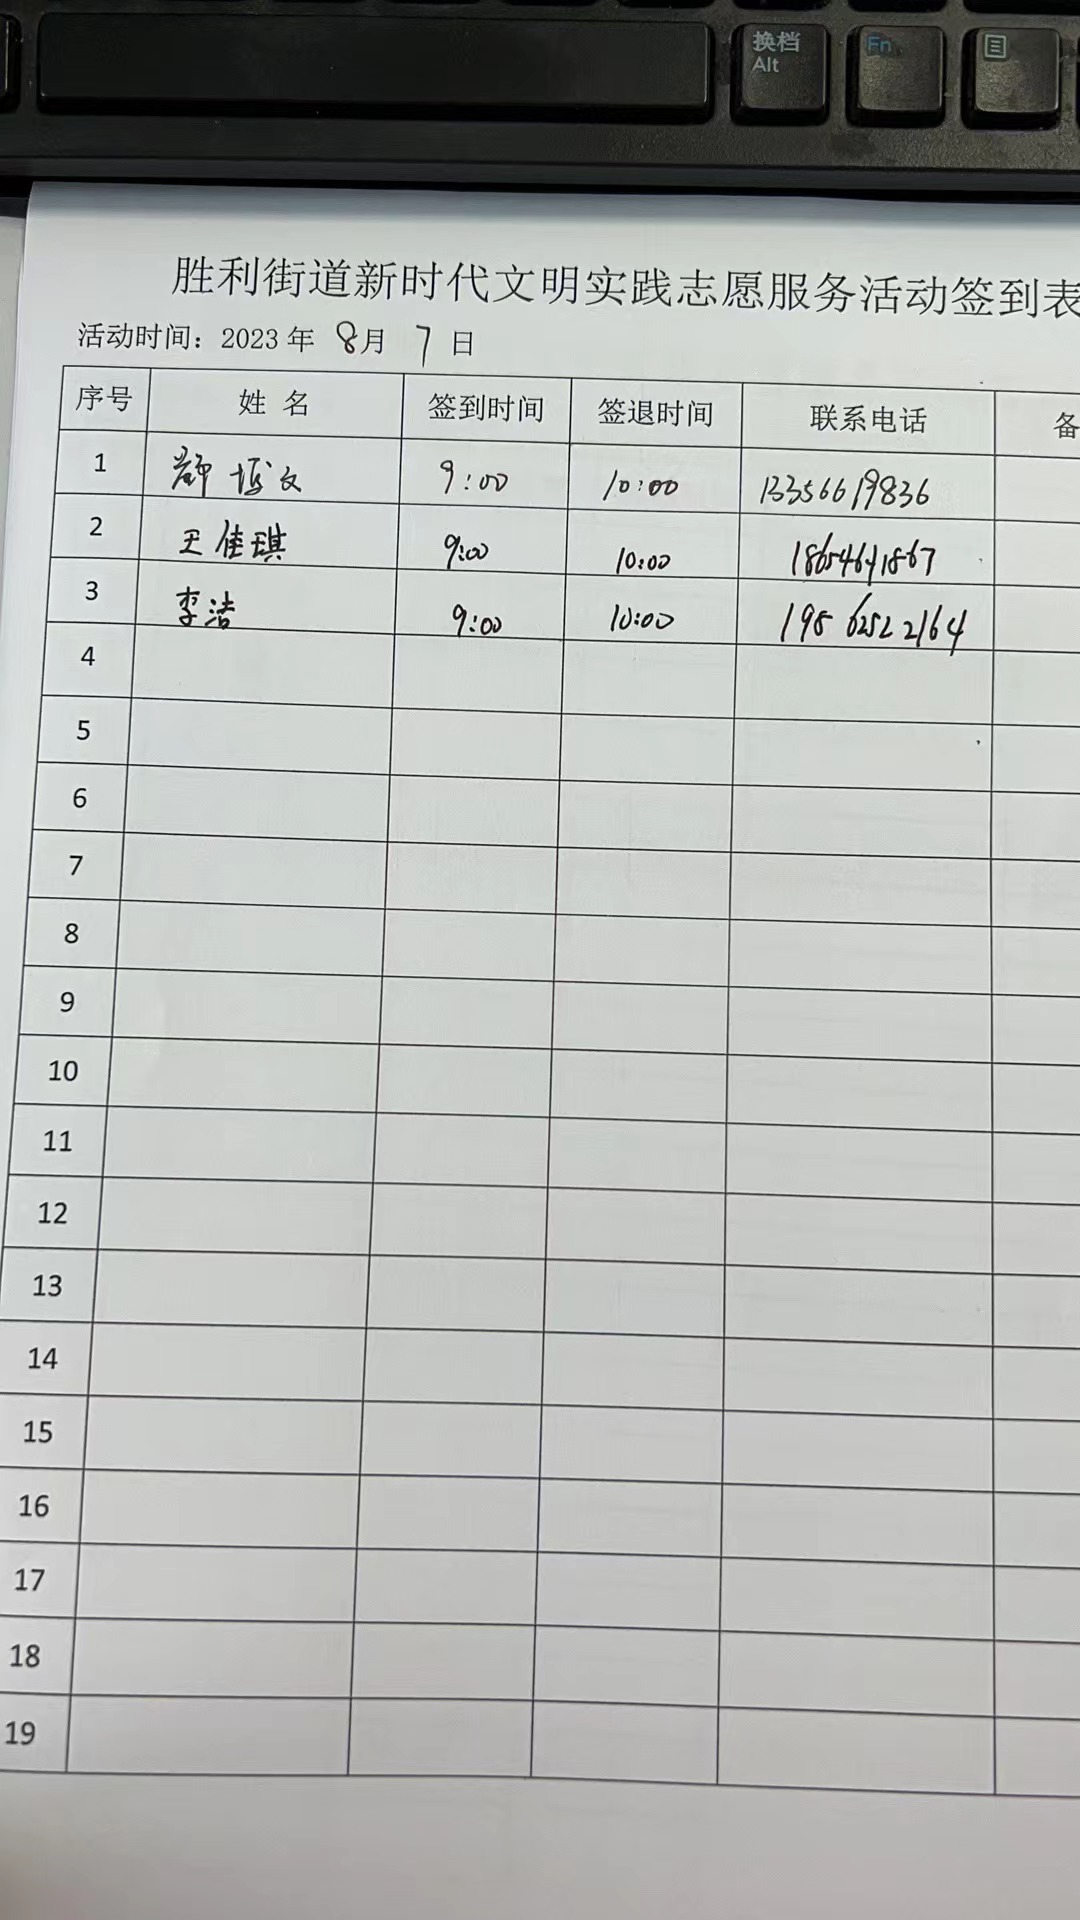 换档
Alt
Fn
胜利街道新时代文明实践志愿服务活动签到表
活动时间：2023 年 8月 7 日
序号 姓 名 签到时间 签退时间 联系电话 备
1 文 9:00 10:00 13356619836
2 王佳琪 9:00 10:00 18654641867
3 李洁 9:00 10:00 19862522164
4
5
6
7
8
9
10
11
12
13
14
15
16
17
18
19